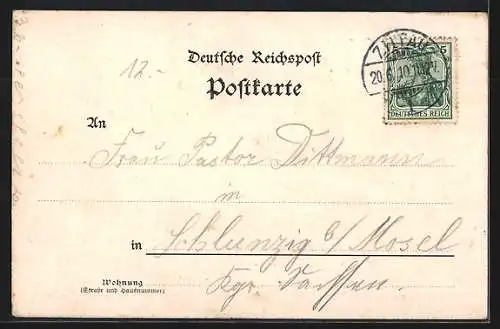 Deutsche Reichspost
Postkarte
12.-
5
20.6.10
DEUTSCHES REICH
An
Frau Pastor Dittmann
in
in Schlunzig b/Mosel
Kgr. Sachsen.
Wohnung
(Straße und Hausnummer)